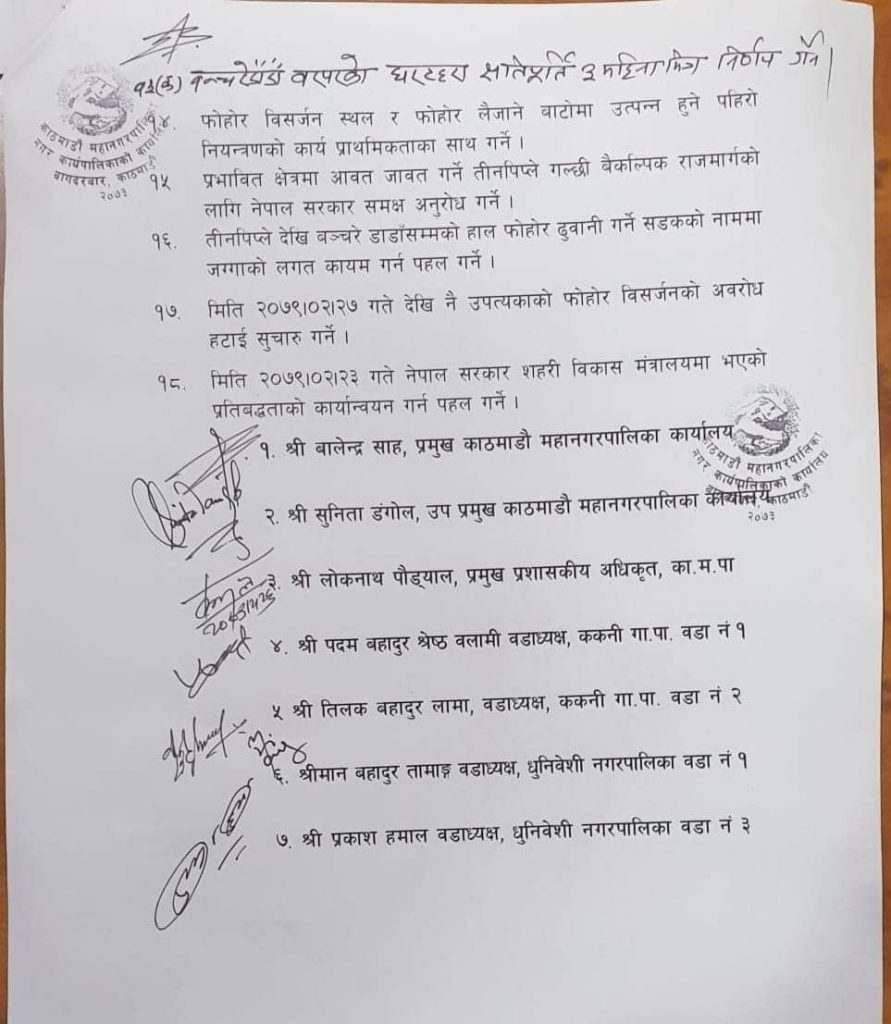 १३(क) बन्चरेडाँडा वरपरको घरटहरा क्षतिपूर्ति ३ महिना भित्र निर्णय गर्ने
१४. फोहोर विसर्जन स्थल र फोहोर लैजाने बाटोमा उत्पन्न हुने पहिरो
नियन्त्रणको कार्य प्राथमिकताका साथ गर्ने ।
१५ प्रभावित क्षेत्रमा आवत जावत गर्ने तीनपिप्ले गल्छी बैर्काल्पक राजमार्गको
लागि नेपाल सरकार समक्ष अनुरोध गर्ने ।
१६. तीनपिप्ले देखि बञ्चरे डाडाँसम्मको हाल फोहोर ढुवानी गर्ने सडकको नाममा
जग्गाको लगत कायम गर्न पहल गर्ने ।
१७. मिति २०७९।०२।२७ गते देखि नै उपत्यकाको फोहोर विसर्जनको अवरोध
हटाई सुचारु गर्ने ।
१८. मिति २०७९।०२।२३ गते नेपाल सरकार शहरी विकास मंत्रालयमा भएको
प्रतिबद्धताको कार्यान्वयन गर्न पहल गर्ने ।
१. श्री बालेन्द्र साह, प्रमुख काठमाडौ महानगरपालिका कार्यालय
२. श्री सुनिता डंगोल, उप प्रमुख काठमाडौ महानगरपालिका कार्यालय
३. श्री लोकनाथ पौड्याल, प्रमुख प्रशासकीय अधिकृत, का.म.पा
४. श्री पदम बहादुर श्रेष्ठ वलामी वडाध्यक्ष, ककनी गा.पा. वडा नं १
५ श्री तिलक बहादुर लामा, वडाध्यक्ष, ककनी गा.पा. वडा नं २
६. श्रीमान बहादुर तामाङ्ग वडाध्यक्ष, धुनिवेशी नगरपालिका वडा नं १
७. श्री प्रकाश हमाल वडाध्यक्ष, धुनिवेशी नगरपालिका वडा नं ३
काठमाडौ महानगरपालिका
नगर कार्यपालिकाको कार्यालय
बागदरबार, काठमाडौ
२०७३
काठमाडौ महानगरपालिका
नगर कार्यपालिकाको कार्यालय
काठमाडौ
२०७३